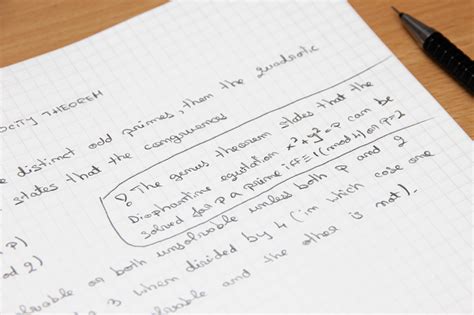 OCITY THEOREM
e distinct odd primes, then the quadratic
states that the congruences
The genus theorem states that the
Diophantine equation x²+y²=p can be
solved for p a prime iff ≡1(mod4) or p=2
p)
od 2)
solvable or both unsolvable unless both p and 2
3 when divided by 4 (in which case one
solvable and the other is not).